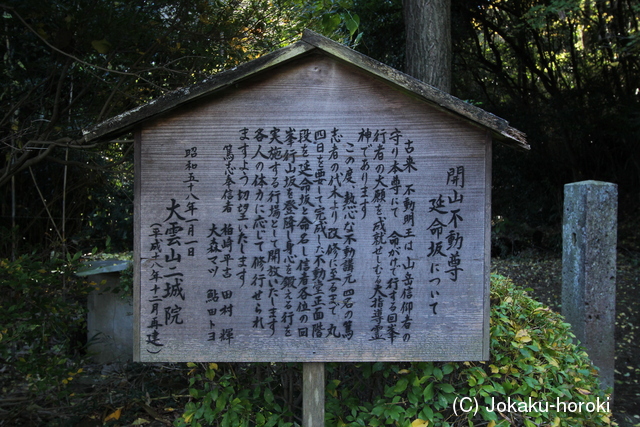 開山不動尊
延命坂について
古来 不動明王は 山岳信仰者の
守り本尊にて 命がけで行する回峯
行者の大願を成就せしむる大指導霊
神であります
この度、熱心な不動講元四名の篤
志者の代木より改修に至るまで 丸
四日を要して完成した不動堂正面階
段を延命坂と命名し信者各位の回
峯行山坂を登降し身心を鍛える行を
実施する行場として開放いたします
各人の体力に応じて修行せられ
ますよう切望いたします
篤志奉信者 柏崎平吉 田村輝
大森マツ 鮎田トヨ
昭和五十八年一月一日
大雲山二城院
(平成十八年十二月再建)
(C) Jokaku-horoki